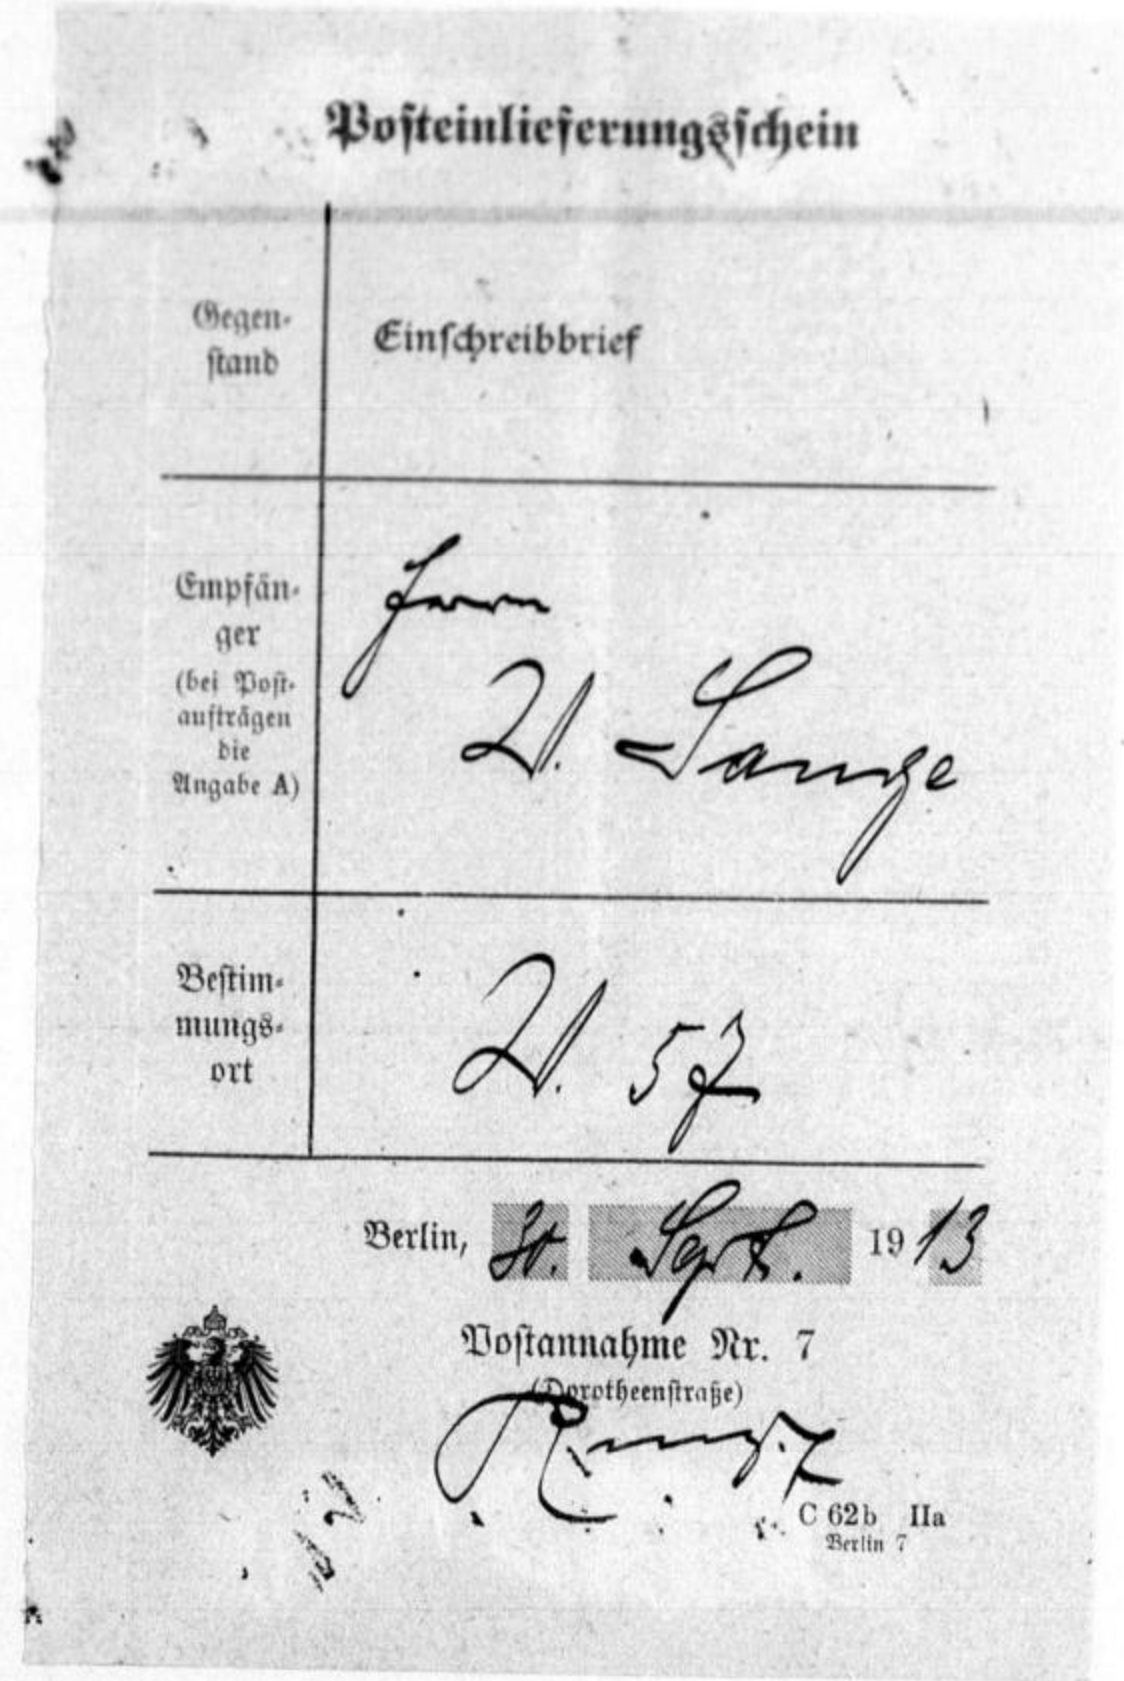 Posteinlieferungsschein
Gegen-
stand
Einschreibbrief
Empfän-
ger
(bei Post-
aufträgen
die
Angabe A)
Herrn
W. Lange
Bestim-
mungs-
ort
W. 57
Berlin, 30. Sept. 1913
Postannahme Nr. 7
(Dorotheenstraße)
C 62b IIa
Berlin 7